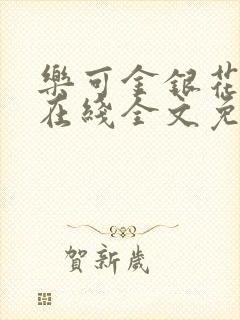 樂可金銀花
在綫全文免
賀新歲